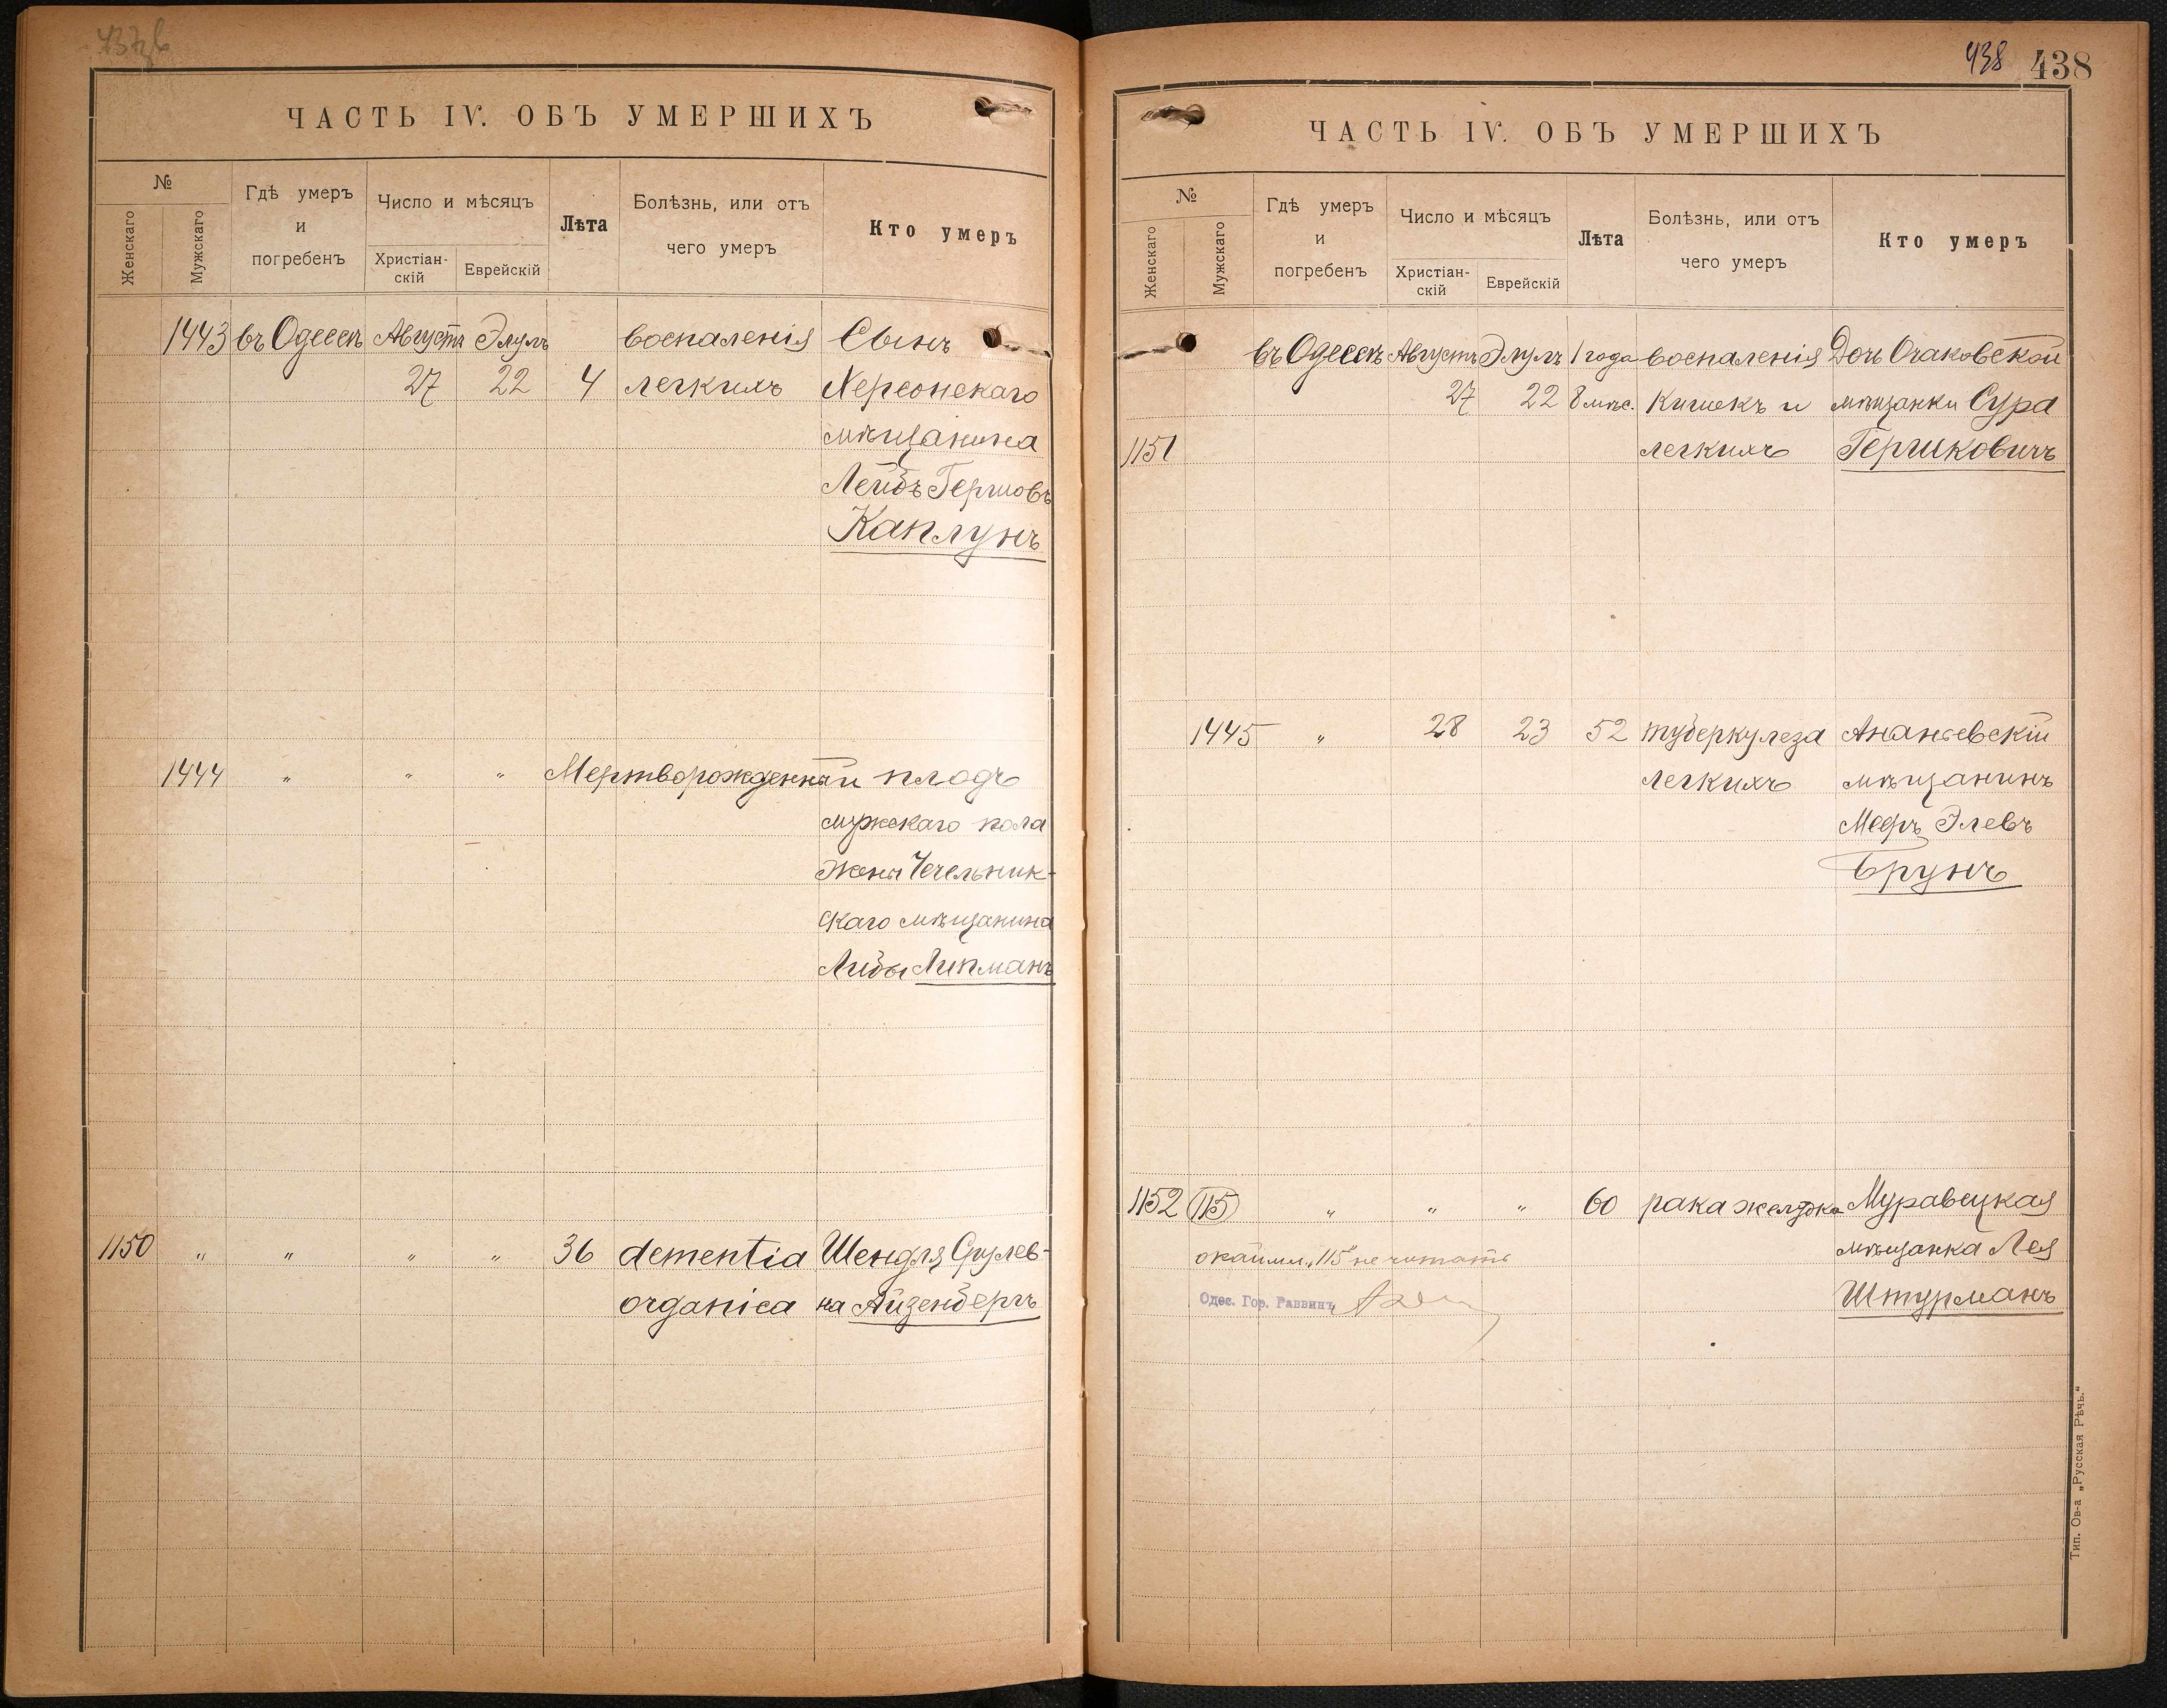 ЧАСТЬ IV. ОБЪ УМЕРШИХЪ
№
Женскаго
Мужскаго
Гдѣ умеръ
и
погребенъ
Число и мѣсяцъ
Христіан-
скій
Еврейскій
Лѣта
Болѣзнь, или отъ
чего умеръ
Кто умеръ
1443 въ Одессѣ Августа Элулъ воспаленія Сынъ
27 22 4 легкихъ Херсонскаго
мѣщанина
Лейбъ Гершовъ
Каплунъ
1444 " " " Мертворожденный плодъ
мужскаго пола
жены Чечельник-
скаго мѣщанина
Либы Липманъ
1150 " " " " 36 dementia Шендля
organica на Айзенбергъ
438 438
ЧАСТЬ IV. ОБЪ УМЕРШИХЪ
№
Женскаго
Мужскаго
Гдѣ умеръ
и
погребенъ
Число и мѣсяцъ
Христіан-
скій
Еврейскій
Лѣта
Болѣзнь, или отъ
чего умеръ
Кто умеръ
въ Одессѣ Августъ Элулъ 1 года воспаленія Дочь Очаковской
27 22 8 мѣс. кишекъ и мѣщанки Сура
1151 легкихъ Гершковичъ
1445 " 28 23 52 туберкулеза Ананьевскій
легкихъ мѣщанинъ
Мееръ Элевъ
Брунъ
1152 115 " " " 60 рака желудка Муравецкая
окаймл. „115" не читать мѣщанка Лея
Одес. Гор. Раввинъ Штурманъ
Тип. Ов-а „Русская Рѣчь."